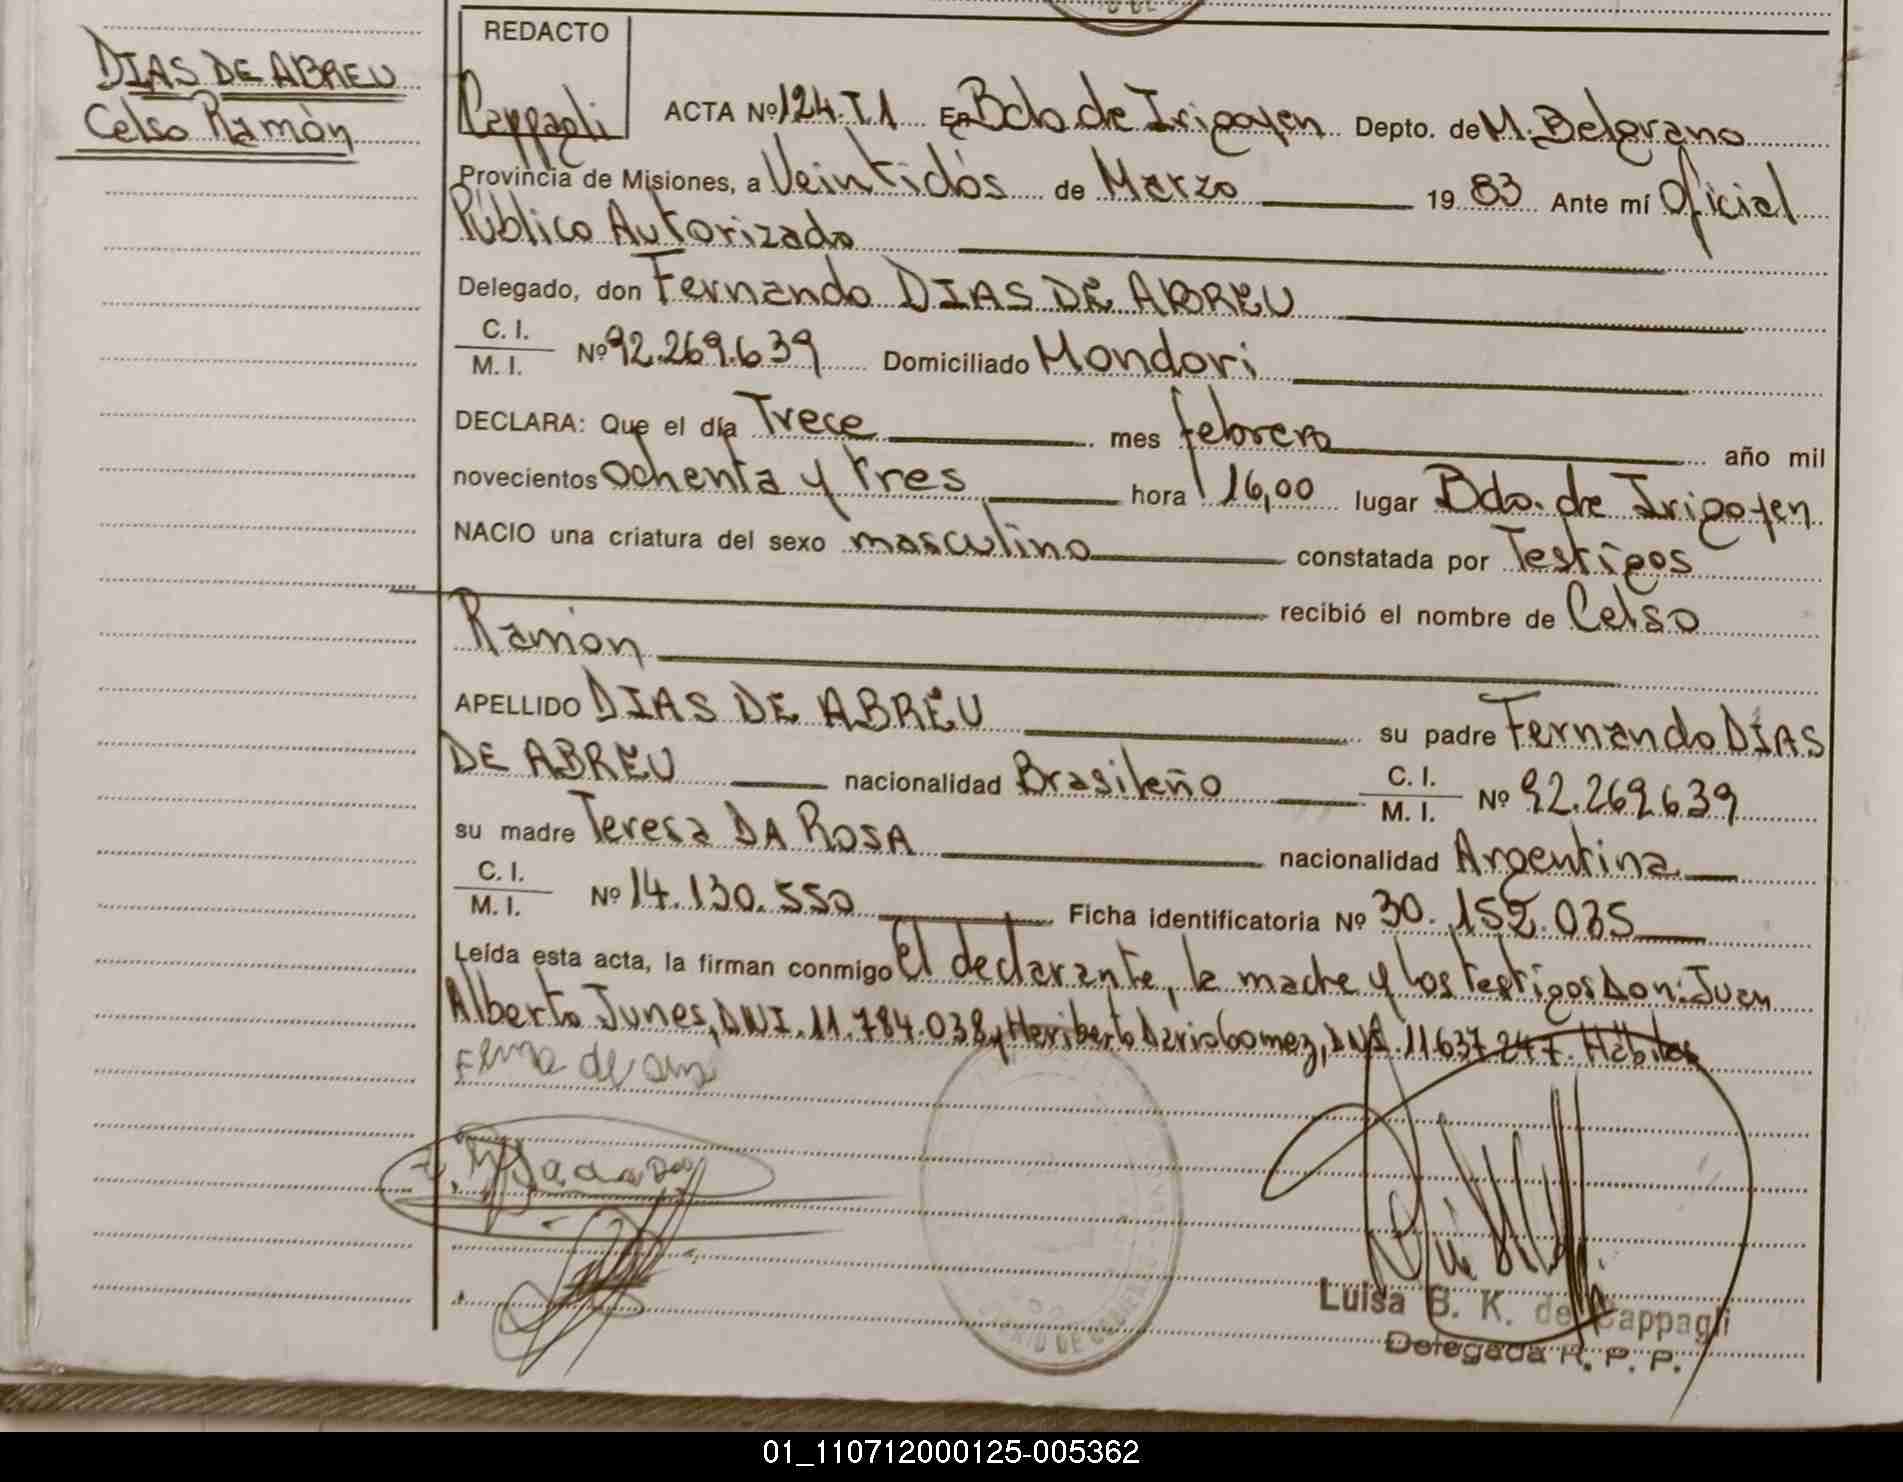 DIAS DE ABREU
Celso Ramón
REDACTO
Cappagli
ACTA Nº 124.T1 En Bdo. de Irigoyen Depto. de M. Belgrano
Provincia de Misiones, a Veintidós de Marzo 19 83 Ante mí Oficial
Público Autorizado
Delegado, don Fernando DIAS DE ABREU
C. I.
M. I. Nº 92.269.639 Domiciliado Mondori
DECLARA: Que el día Trece mes febrero año mil
novecientos ochenta y tres hora 16,00 lugar Bdo. de Irigoyen
NACIO una criatura del sexo masculino constatada por Testigos
recibió el nombre de Celso
Ramón
APELLIDO DIAS DE ABREU su padre Fernando DIAS
DE ABREU nacionalidad Brasileño C. I. M. I. Nº 92.269.639
su madre Teresa DA ROSA nacionalidad Argentina
C. I.
M. I. Nº 14.130.550 Ficha identificatoria Nº 30.152.035
Leída esta acta, la firman conmigo el declarante, la madre y los testigos Don: Juan
Alberto Junes, DNI. 11.784.038 y Heriberto Dario Gomez, DNI. 11637247. Hábiles
Luisa B. K. de Cappagli
Delegada R. P. P.
01_110712000125-005362